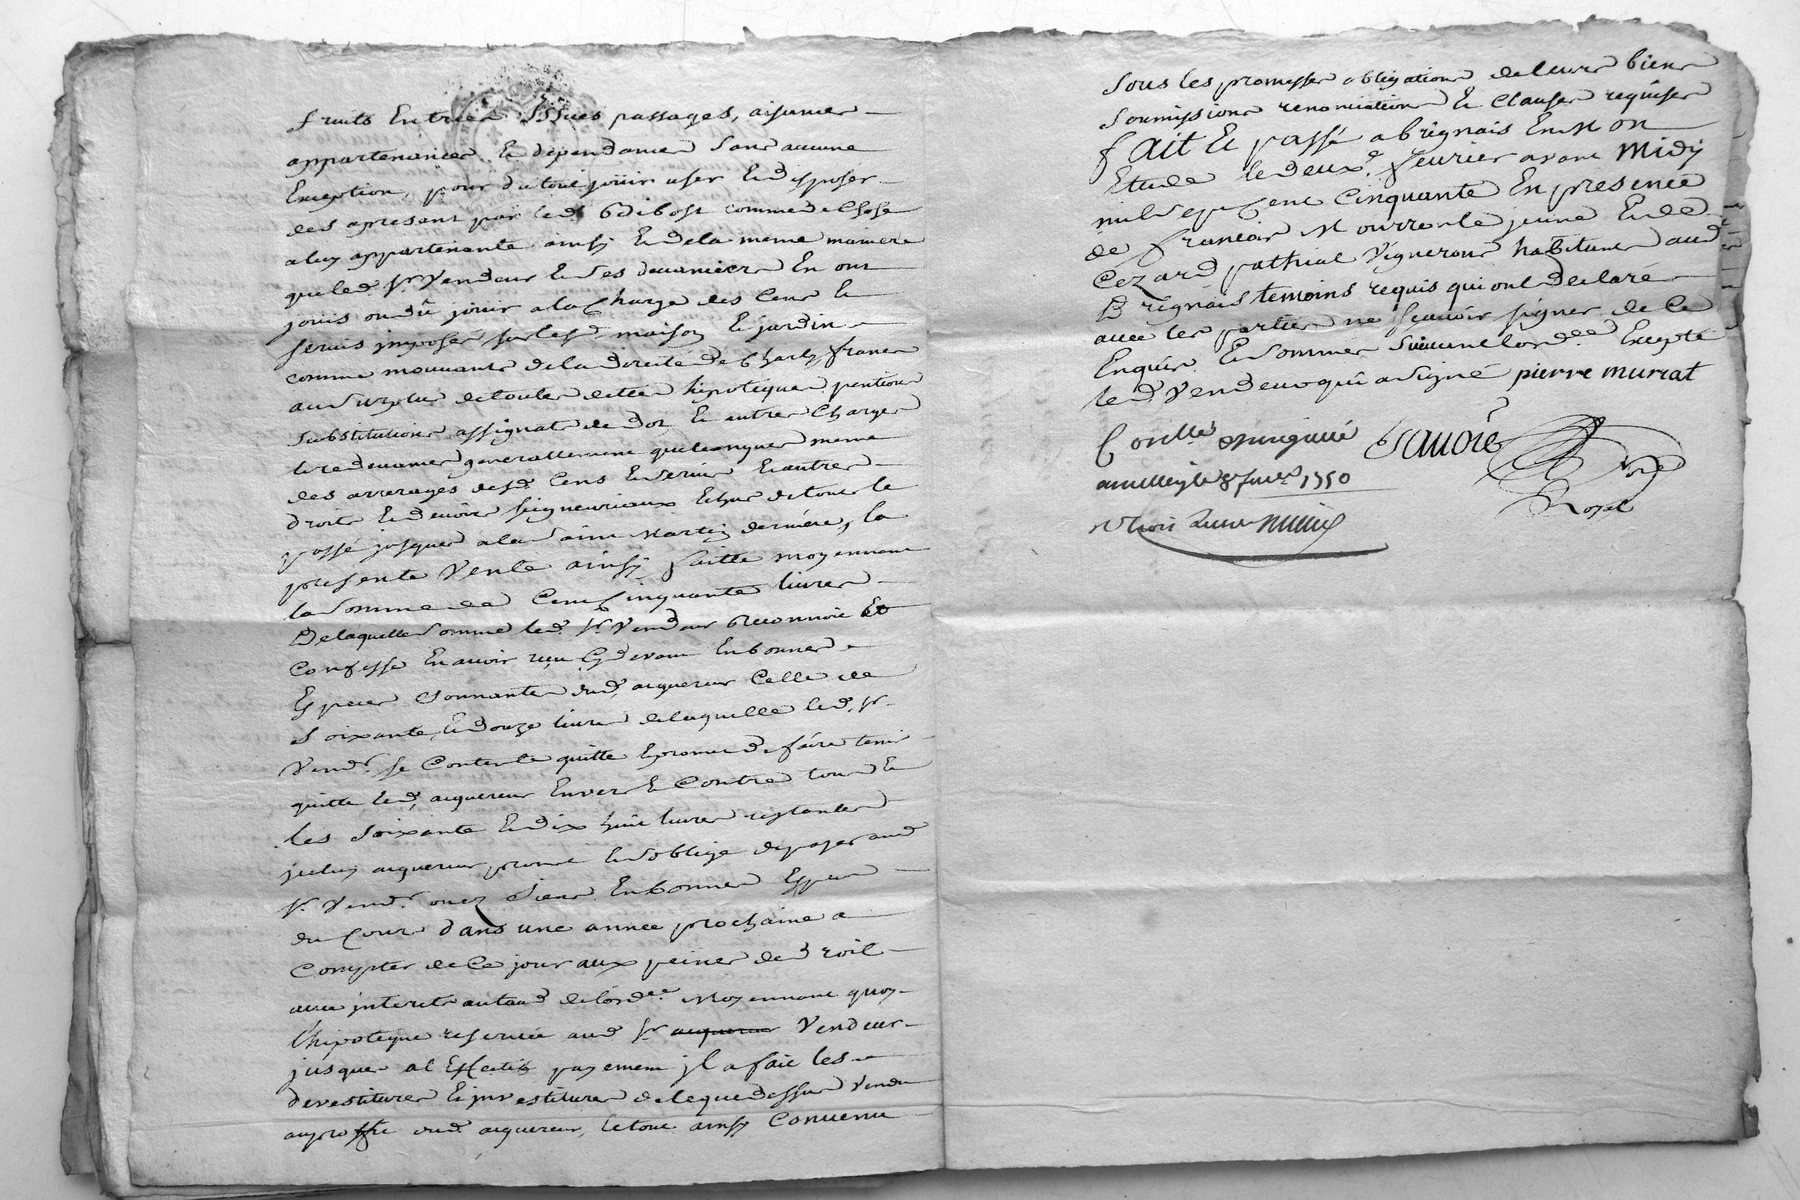 fruits Entrées Issues passages, aisances
appartenances Et dependances Sans aucune
Exception, pour du tout jouir user Et disposer
des apresent par led. comme de Chose
a luy appartenante ainsy Et de la meme maniere
que led. Sr Vendeur Et Ses devanciers En ont
jouis ou dû jouir a la Charge des Cens Et
servis imposés sur lesd. maison Et jardin
comme mouvants de la directe de Charly, francs
au Surplus de toutes dettes hipoteques pentions
substitutions assignats de dot Et autres Charges
Et redevances generallement quelconques meme
des arrerages desd. Cens Et servis Et autres
droits Et devoirs seigneuriaux Echus de tout le
passé jusques a la Saint Martin derniere, la
presente Vente ainsy faitte moyennant
la Somme de Cent Cinquante livres
De laquelle Somme led. Sr Vendeur reconnoit Et
Confesse En avoir reçu Cy devant En bonnes
Especes Sonnantes dud. acquereur Celle de
Soixante Et douze livres de laquelle led. Sr
Vend.r se Contente quitte Et promet de faire tenir
quitte led. acquereur Envers Et Contre tous Et
les Soixante Et dix huit livres restantes
jceluy acquereur promet Et s'oblige de payer aud.
Sr Vend.r ou es Siens En bonnes Especes
du Cours dans une année prochaine a
Compter de Ce jour aux peines de droit
avec interets au taux de l'ord.ce Moyennant quoy
l'hipoteque reservée aud. Sr acquereur Vendeur
jusques a l'Effectif payement jl a fait les
devestitures Et jnvestitures de le que dessus Vendu
au proffit dud. acquereur, Le tout ainsy Convenu
Sous les promesses obligations de leurs biens
Soumissions renonciations Et Clauses requises
fait Et passé a brignais En Mon
Etude le deux.e fevrier avant Midy
mil Sept Cent Cinquante En presence
de francois Mourron le jeune Et de
Cezard pathial Vignerons habitants aud.
Brignais temoins requis qui ont declaré
avec les parties ne sçavoir signer de Ce
Enquis Et Sommés Suivant l'ord.ce Excepté
led. Vendeur qui a Signé pierre muriat
Controllé
le 8e fevr. 1750
Royal